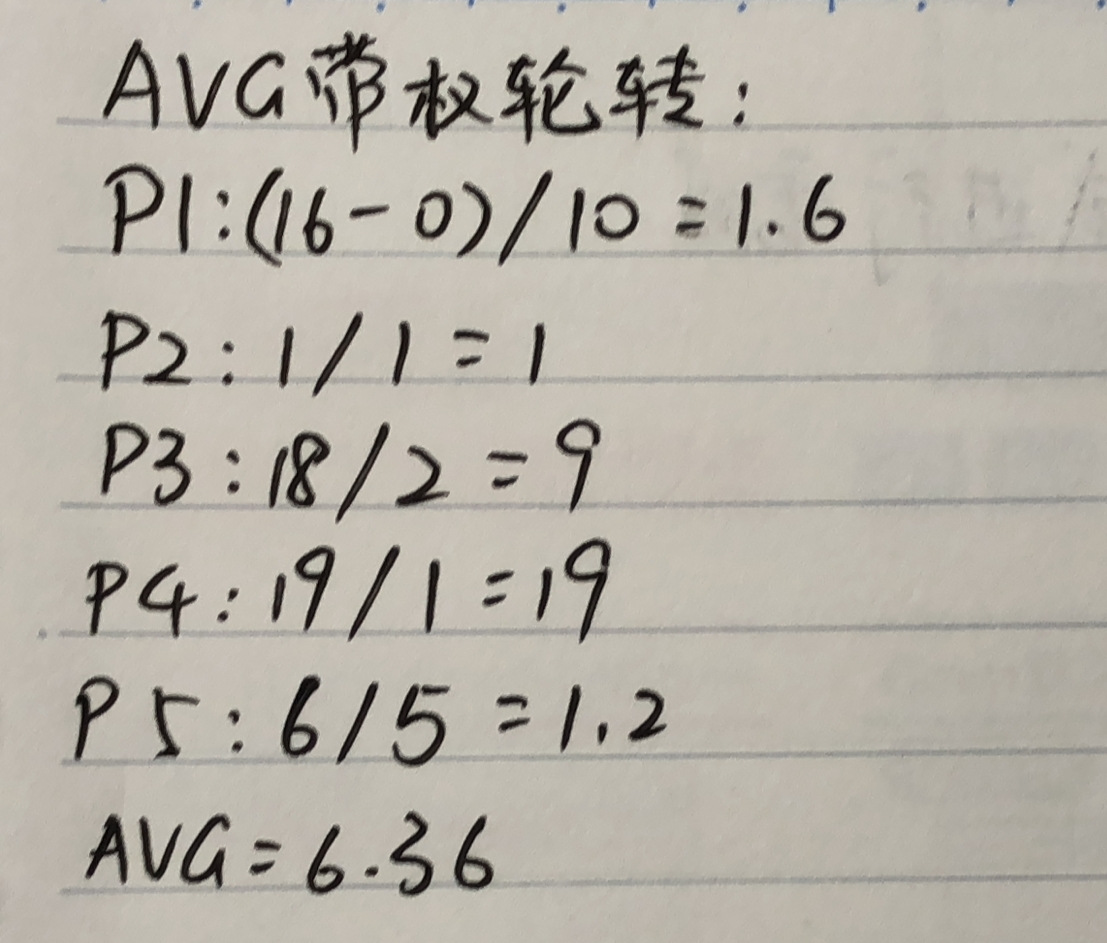 AVG带权轮转:
P1:(16-0)/10=1.6
P2:1/1=1
P3:18/2=9
P4:19/1=19
P5:6/5=1.2
AVG=6.36